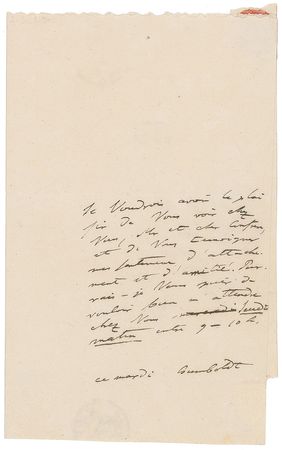 Je Voudrois avoir le plai
sir de Vous voir chez
Vous, et cher
et de Vous temoigner
mes d'attache
ment et d'amitié. Pour
rais-je Vous prier de
vouloir bien m'attendre
chez Vous Jeudi
matin entre 9-10 h.
ce mardi Humboldt